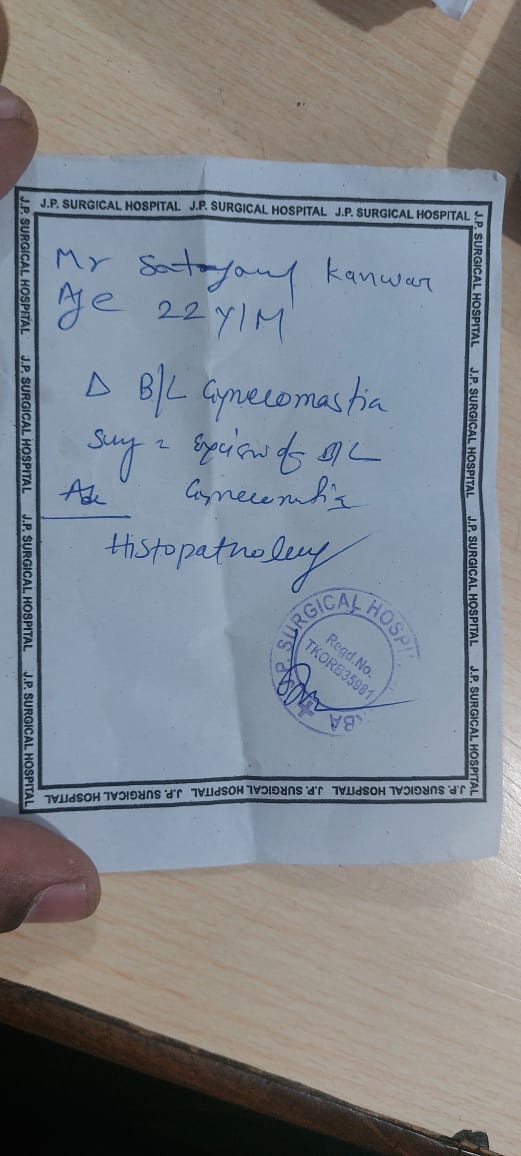 J.P. SURGICAL HOSPITAL J.P. SURGICAL HOSPITAL J.P. SURGICAL HOSPITAL
J.P. SURGICAL HOSPITAL J.P. SURGICAL HOSPITAL J.P. SURGICAL HOSPITAL J.P. SURGICAL HOSPITAL
J.P. SURGICAL HOSPITAL J.P. SURGICAL HOSPITAL J.P. SURGICAL HOSPITAL J.P. SURGICAL HOSPITAL
Mr Kanwar
Age 22 Y/M
Δ B/L Gynecomastia
Excision of B/L
Gynecomastia
Histopathology
J.P. SURGICAL HOSPITAL
Regd.No.
TKORB35981
J.P. SURGICAL HOSPITAL J.P. SURGICAL HOSPITAL J.P. SURGICAL HOSPITAL